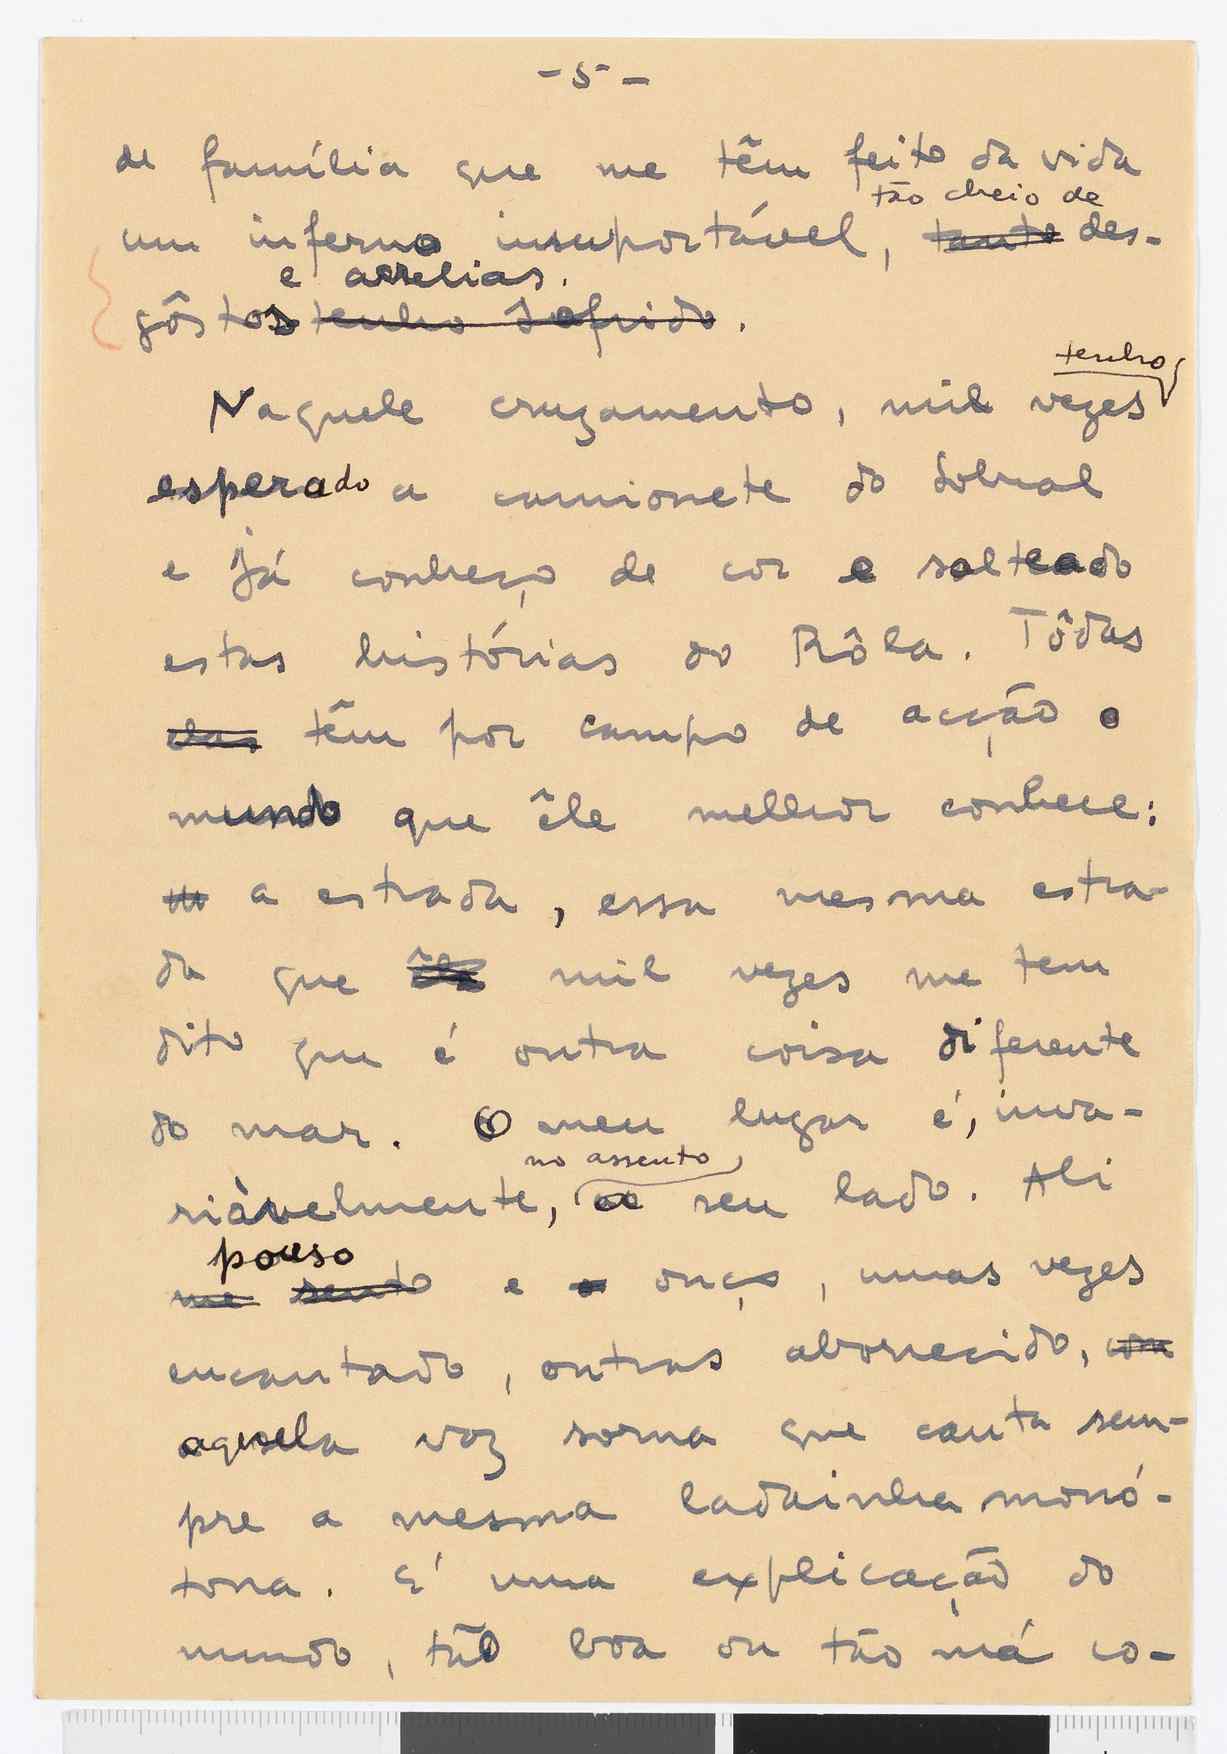 - 5 -
de família que me têm feito da vida
tão cheio de
um inferno insuportável, tanto des-
e arrelias.
gôstos tenho sofrido.
tenho
Naquele cruzamento, mil vezes
esperado a camionete do Sobral
e já conheço de cor e salteado
estas histórias do Rôla. Tôdas
elas têm por campo de acção o
mundo que êle melhor conhece:
m a estrada, essa mesma estra-
da que êle mil vezes me tem
dito que é outra coisa diferente
do mar. O meu lugar é, inva-
no assento
riàvelmente, ao seu lado. Ali
pouso
me sento e o ouço, umas vezes
encantado, outras aborrecido, com
aquela voz sorna que canta sem-
pre a mesma ladainha monó-
tona. É uma explicação do
mundo, tão boa ou tão má co-